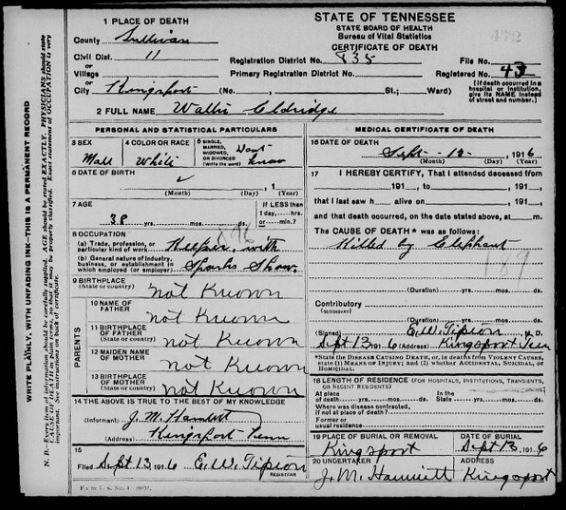 1 PLACE OF DEATH
County Sullivan
Civil Dist. 11
or
Village
or
City Kingsport (No. St.; Ward)
STATE OF TENNESSEE
STATE BOARD OF HEALTH
Bureau of Vital Statistics
CERTIFICATE OF DEATH
472
Registration District No. 835 File No.
Primary Registration District No. Registered No. 43
(If death occurred in a hospital or institution, give its NAME instead of street and number.)
2 FULL NAME Walter Eldridge
PERSONAL AND STATISTICAL PARTICULARS
3 SEX Male
4 COLOR OR RACE White
5 SINGLE, MARRIED, WIDOWED, OR DIVORCED (Write the word) Dont Know
6 DATE OF BIRTH
(Month) (Day) , 1 (Year)
7 AGE
38 yrs. mos. ds.
If LESS than 1 day, hrs. or min.?
8 OCCUPATION
(a) Trade, profession, or particular kind of work Helper, with
(b) General nature of industry, business, or establishment in which employed (or employer) Sparks Show
9 BIRTHPLACE (State or country) Not Known
PARENTS
10 NAME OF FATHER Not Known
11 BIRTHPLACE OF FATHER (State or country) Not Known
12 MAIDEN NAME OF MOTHER Not Known
13 BIRTHPLACE OF MOTHER (State or country) Not Known
14 THE ABOVE IS TRUE TO THE BEST OF MY KNOWLEDGE
(Informant) J. M.
(Address) Kingsport Tenn
15
Filed Sept 13, 1916 E. W. Tipton
REGISTRAR
MEDICAL CERTIFICATE OF DEATH
16 DATE OF DEATH
Sept - 12 - , 1916
(Month) (Day) (Year)
17 I HEREBY CERTIFY, That I attended deceased from
191 , to 191 ,
that I last saw h alive on , 191 ,
and that death occurred, on the date stated above, at m.
The CAUSE OF DEATH * was as follows:
Killed by Elephant
189
(Duration) yrs. mos. ds.
Contributory
(Secondary)
(Duration) yrs. mos. ds.
(Signed) E. W. Tipton M. D.
Sept 13, 1916 (Address) Kingsport Tenn
*State the DISEASE CAUSING DEATH, or, in deaths from VIOLENT CAUSES, state (1) MEANS OF INJURY; and (2) whether ACCIDENTAL, SUICIDAL, or HOMICIDAL.
18 LENGTH OF RESIDENCE (FOR HOSPITALS, INSTITUTIONS, TRANSIENTS, OR RECENT RESIDENTS)
At place of death yrs. mos. ds. In the State yrs. mos. ds.
Where was disease contracted, if not at place of death?
Former or usual residence
19 PLACE OF BURIAL OR REMOVAL Kingsport
DATE OF BURIAL Sept 13, 1916
20 UNDERTAKER J. M.
ADDRESS Kingsport
WRITE PLAINLY, WITH UNFADING INK—THIS IS A PERMANENT RECORD
N. B.—Every item of information should be carefully supplied. AGE should be stated EXACTLY. PHYSICIANS should state CAUSE OF DEATH in plain terms, so that it may be properly classified. Exact statement of OCCUPATION is very important. See instructions on back of certificate.